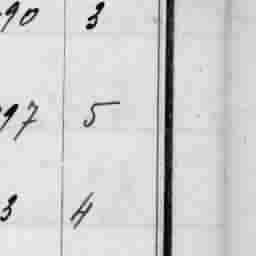 90 3
97 5
3 4